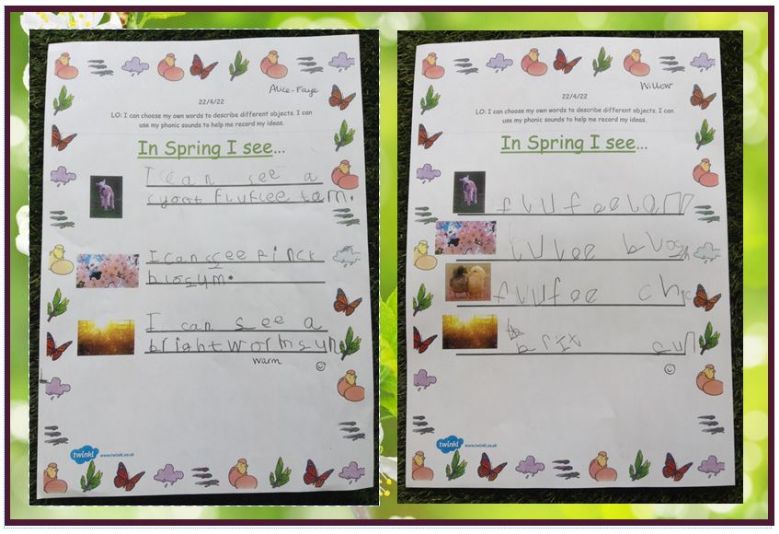 Alice-Faye
22/4/22
LO: I can choose my own words to describe different objects. I can
use my phonic sounds to help me record my ideas.
In Spring I see...
I can see a
fluflee lam.
I can see pinck
blosum.
I can see a
bright worm sun
warm
twinkl www.twinkl.co.uk
Willow
22/4/22
LO: I can choose my own words to describe different objects. I can
use my phonic sounds to help me record my ideas.
In Spring I see...
flufee lam
flufee chic
sun
twinkl www.twinkl.co.uk